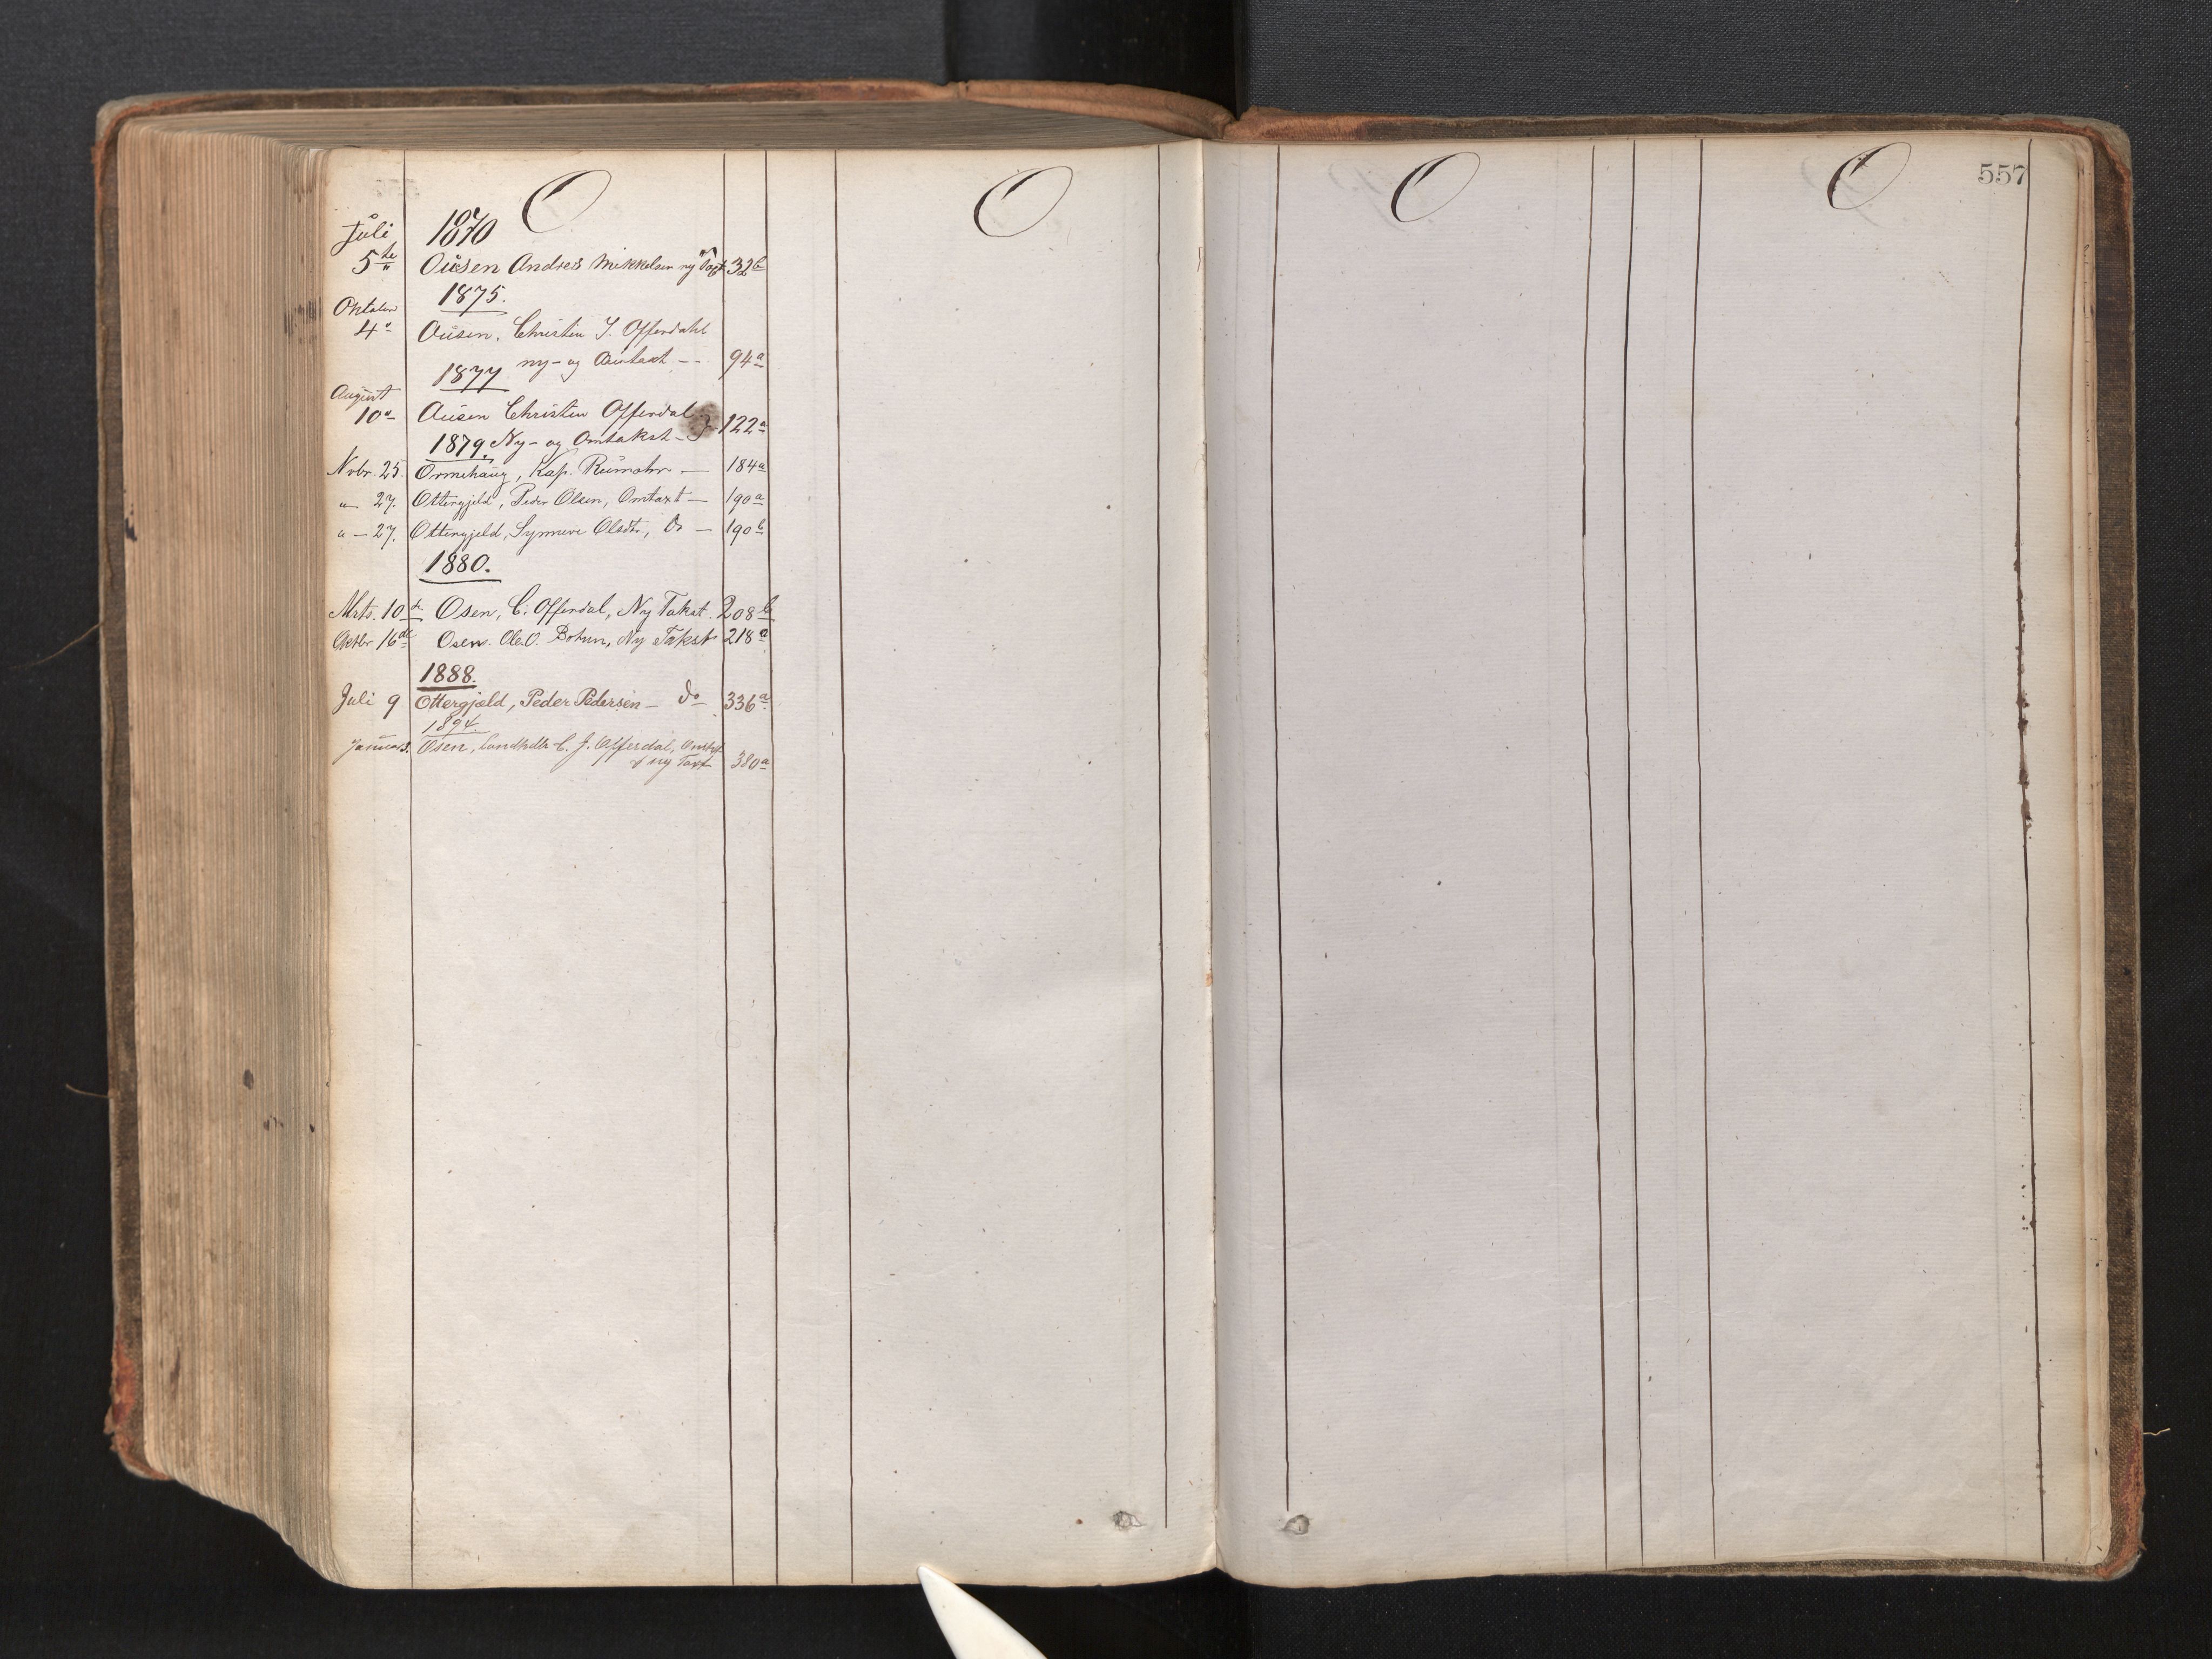 O O O O 557
Juli 1870
5te Ousen Andreas Mikkelsen ny Taxt 32b
Oktober 1875.
4de Ousen, Christen J. Offerdahl
ny- og Omtaxt -- 94a
1877
August
10de Ousen Christen Offerdal
1879. Ny- og Omtakst - 122a
Novbr. 25. Ormehaug, Kap. Rumohr — 184a
" 27. Ottergjeld, Peder Olsen, Omtaxt — 190a
" — 27. Ottergjeld, Synneve Olsdtr, Do — 190b
1880.
Mrts. 10de Osen, C. Offerdal, Ny Takst. 208b
Oktbr 16de Osen. Ole O. Botun, Ny Takst 218a
1888.
Juli 9 Ottergjeld, Peder Pedersen — do 336a
1894.
Januar 3. Osen, Landhdlr C. J. Offerdal, Omtaxt
& ny Taxt 380a